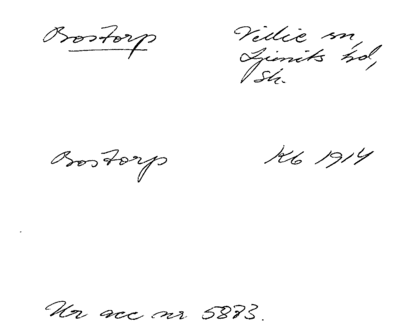 Bostorp Vellie sn,
Ljunits hd,
Sk.
Bostorp Kb 1914
Ur acc nr 5873.